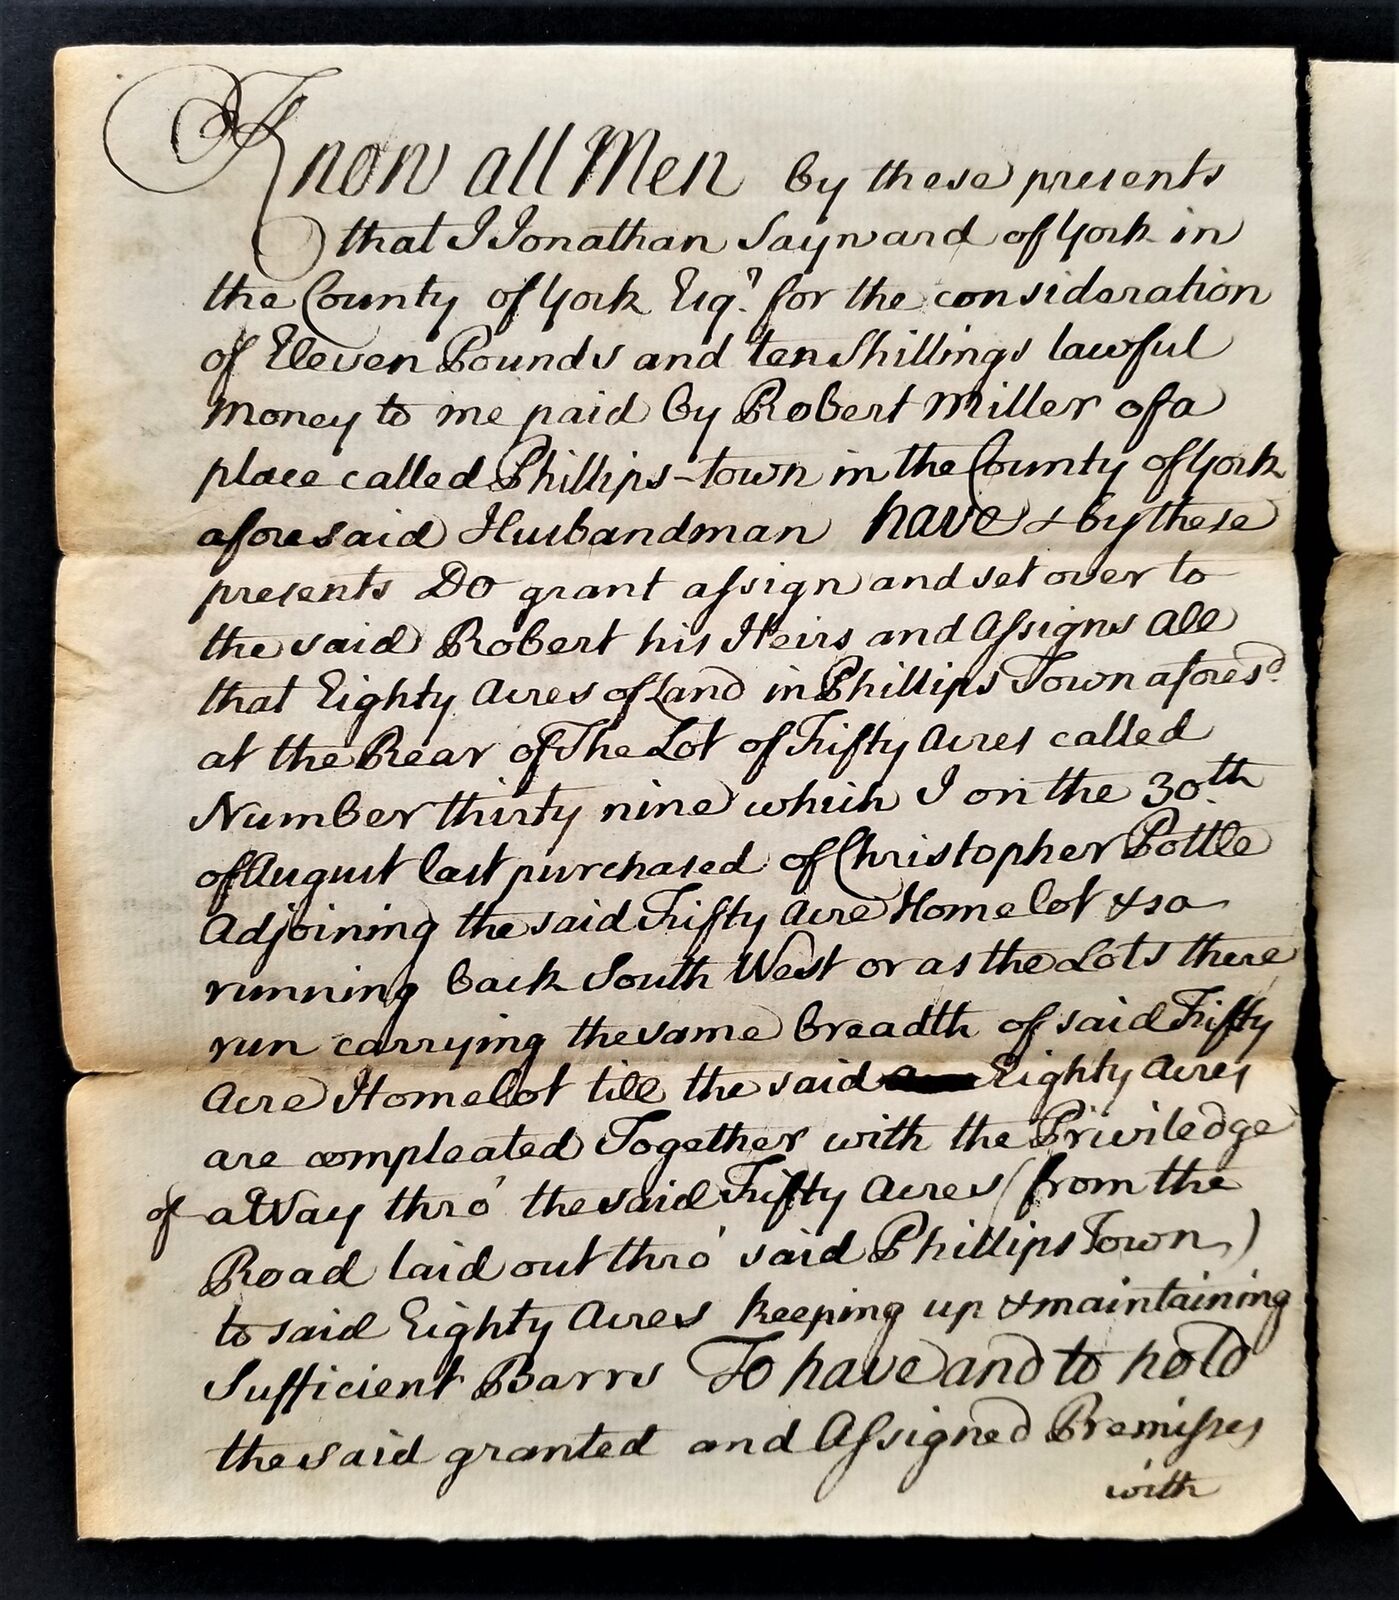 Know all Men by these presents
that I Jonathan Sayward of York in
the County of York Esqr. for the consideration
of Eleven Pounds and ten Shillings lawful
money to me paid by Robert Miller of a
place called Phillips-town in the County of York
aforesaid Husbandman have & by these
presents Do grant assign and set over to
the said Robert his Heirs and Assigns all
that Eighty Acres of Land in Phillips Town aforesd.
at the Rear of The Lot of Fifty Acres called
Number thirty nine which I on the 30th.
of August last purchased of Christopher Pottle
Adjoining the said Fifty Acre Home lot & so
running back South West or as the Lots there
run carrying the same breadth of said Fifty
Acre Home lot till the said Eighty Acres
are compleated Together with the Priviledge
of a Way thro' the said Fifty Acres (from the
Road laid out thro' said Phillips Town)
to said Eighty Acres keeping up & maintaining
Sufficient Barrs To have and to hold
the said granted and Assigned Premisses
with